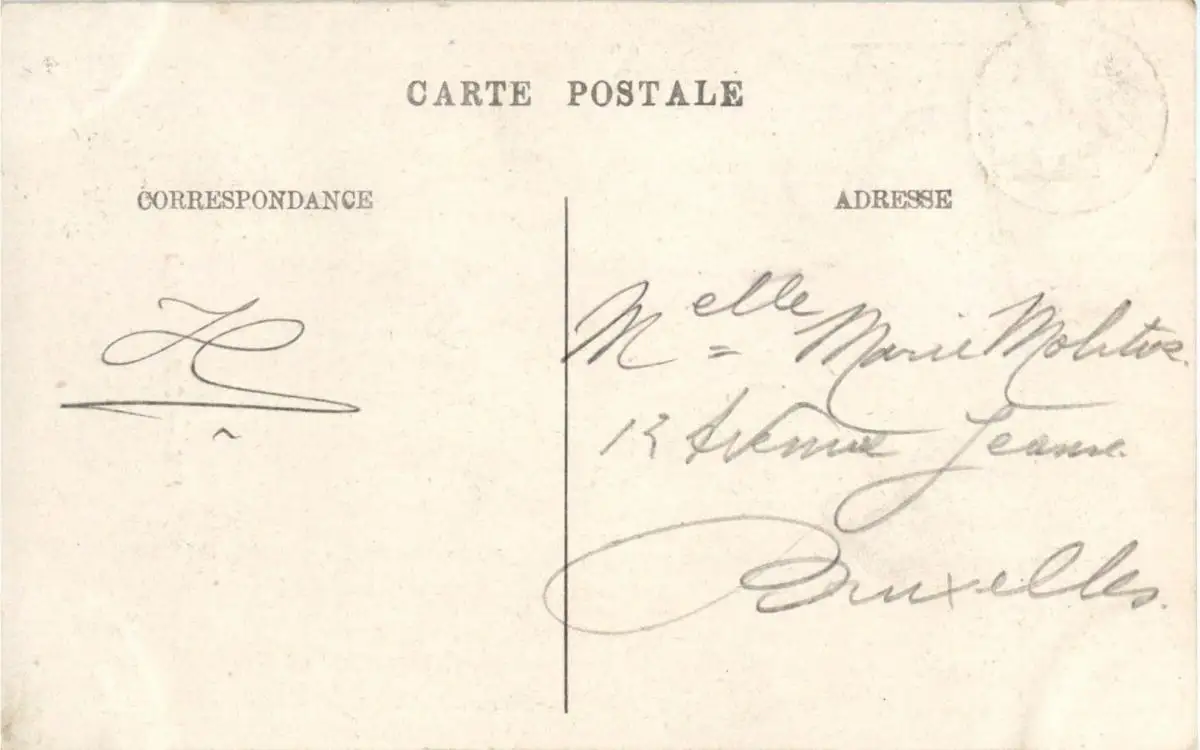 CARTE POSTALE
CORRESPONDANCE
ADRESSE
Melle = Marie Molitor
13 Avenue Jeanne
Bruxelles.